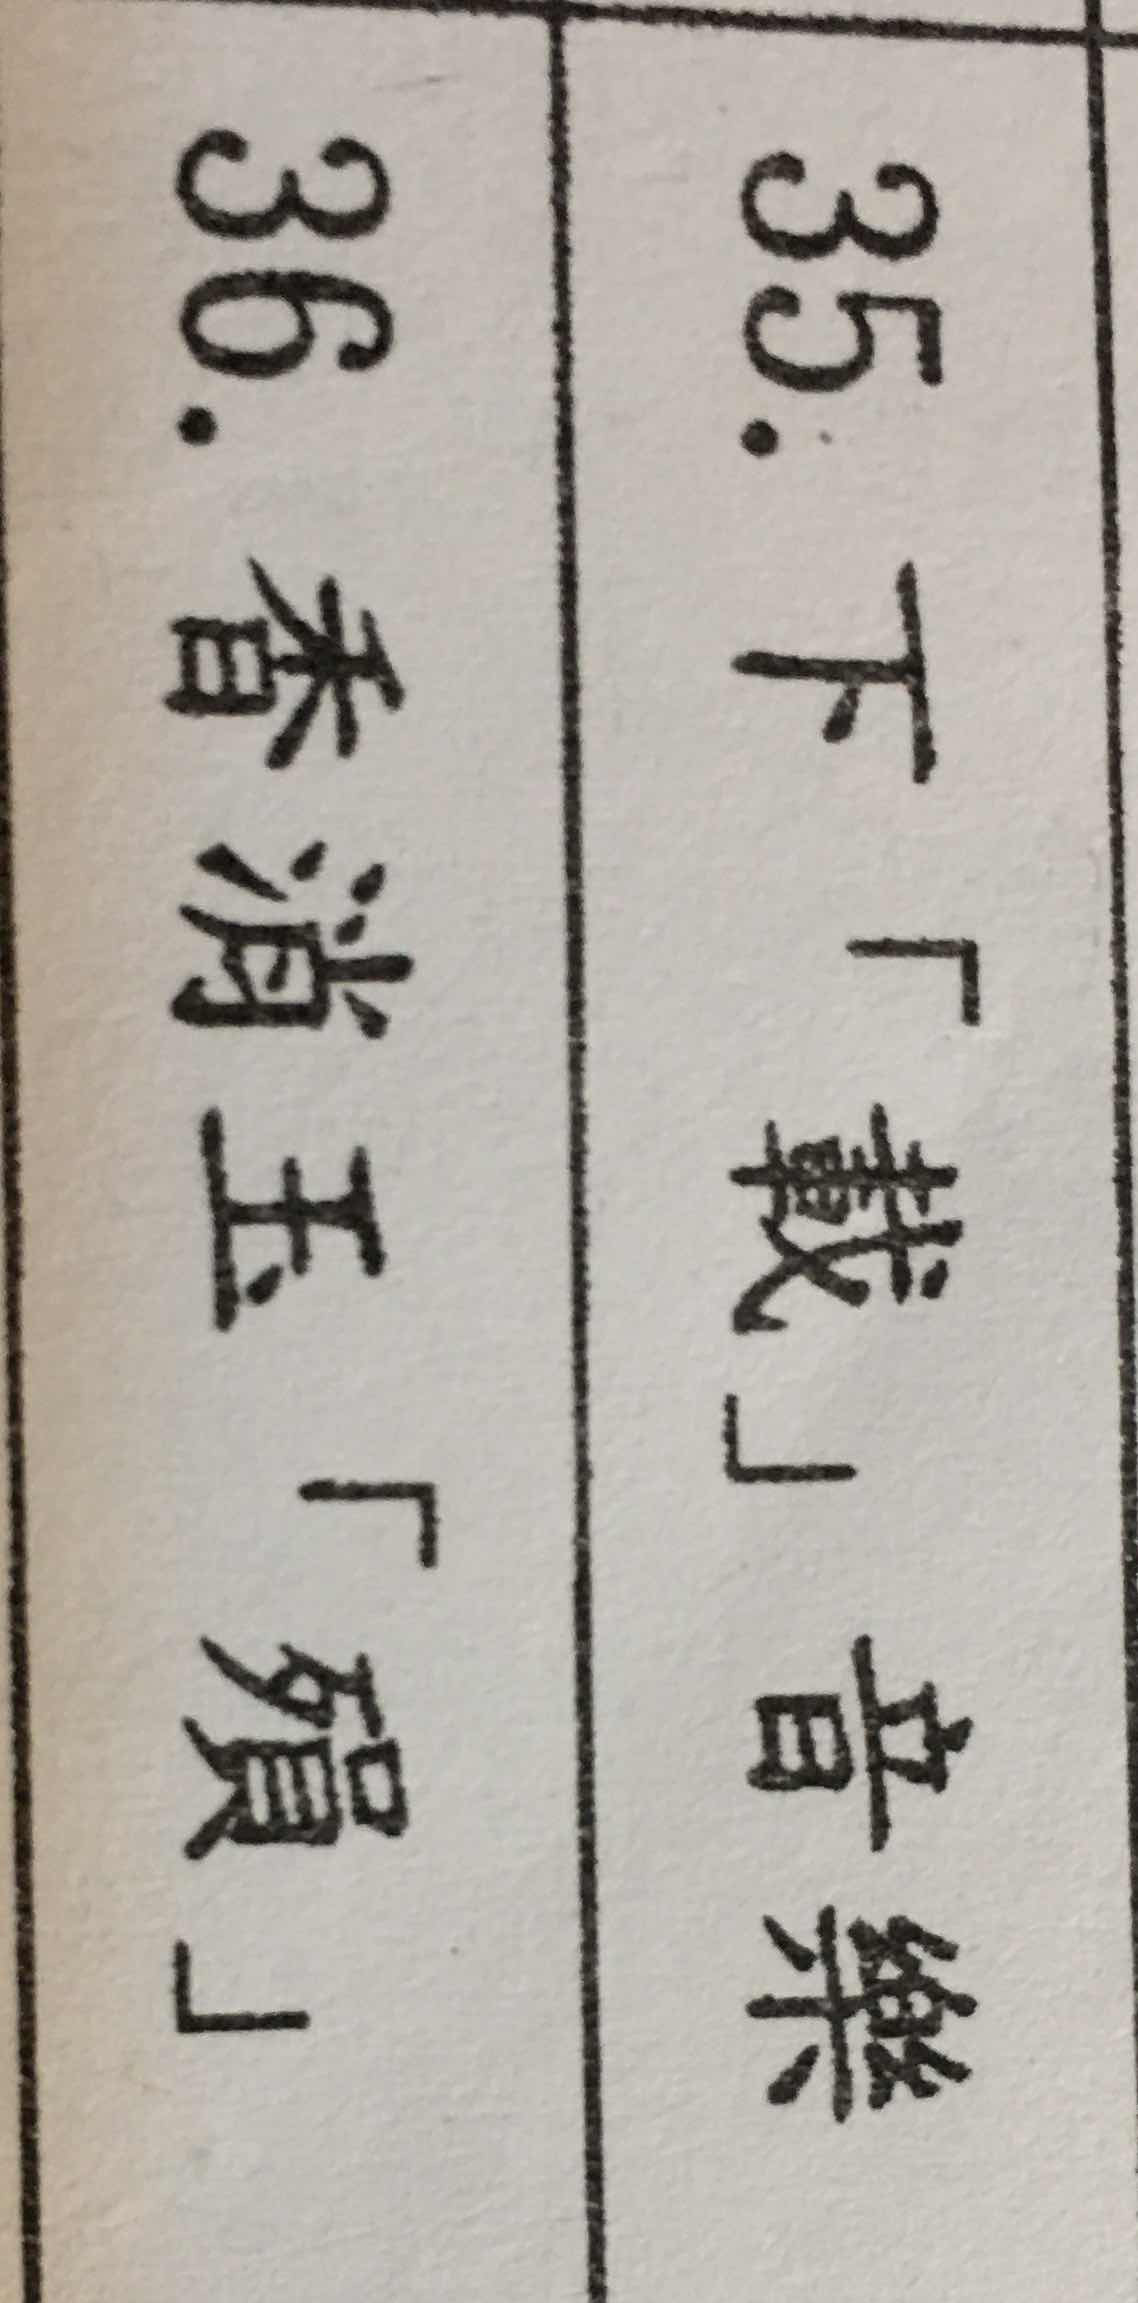 35. 下「載」音樂
36. 香消玉「殞」